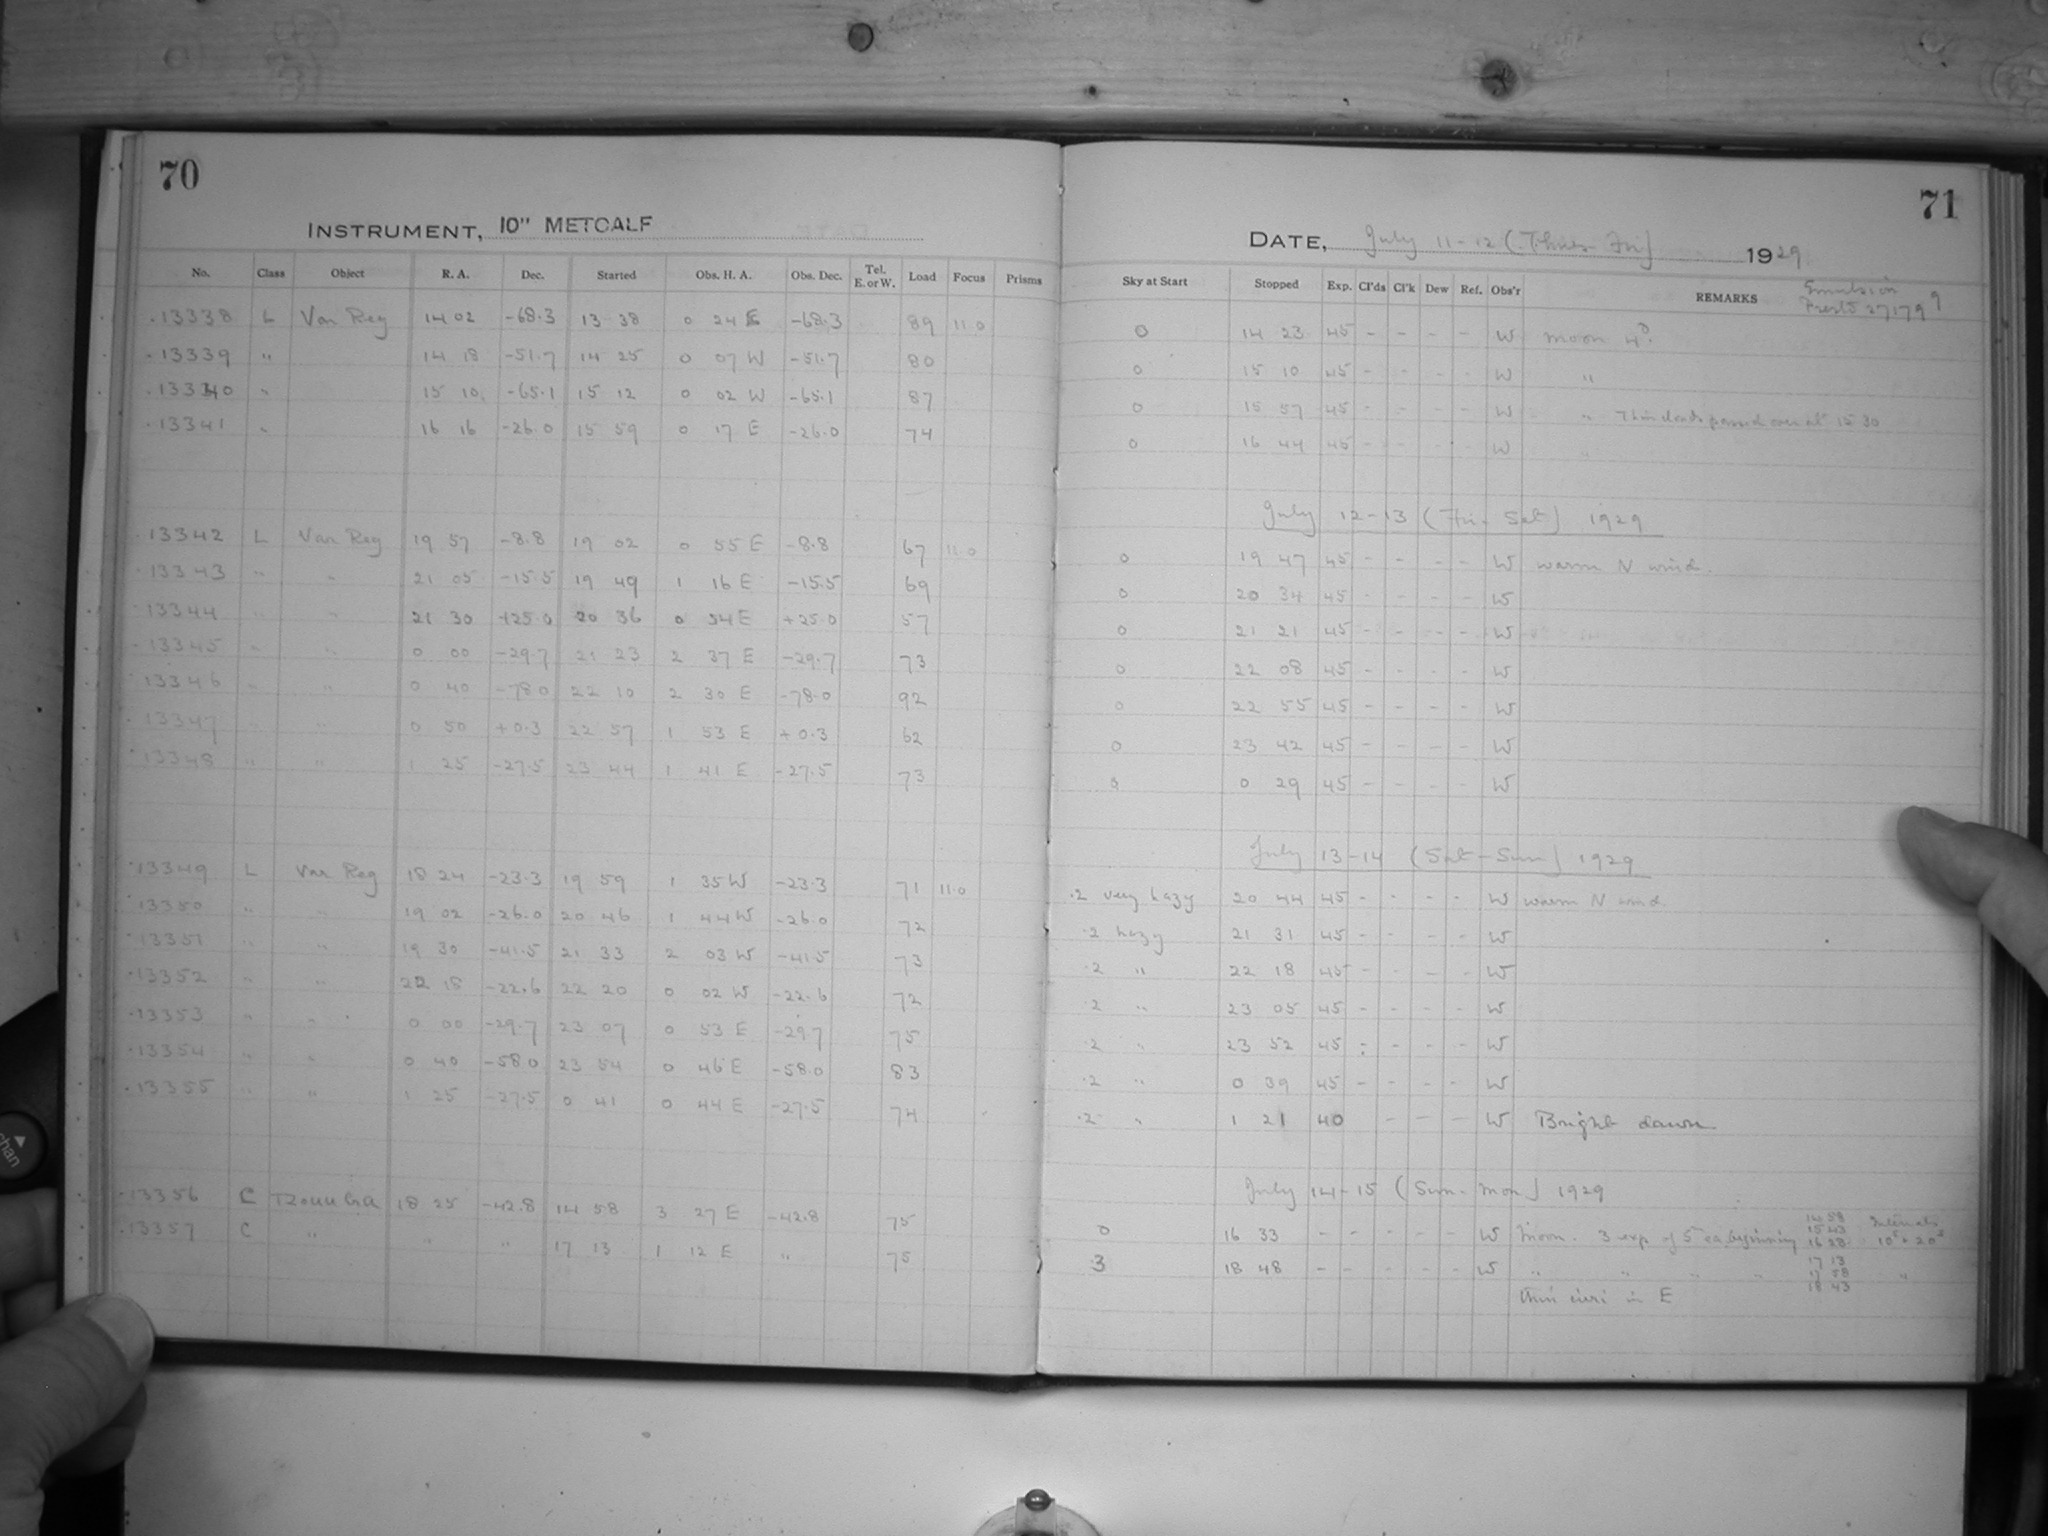 70
INSTRUMENT, 10" METCALF
No. Class Object R. A. Dec. Started Obs. H. A. Obs. Dec. Tel. E. or W. Load Focus Prisms
13338 L Var Reg 14 02 -68.3 13 38 0 24 E -68.3 89 11.0
13339 " 14 18 -51.7 14 25 0 07 W -51.7 80
13340 " 15 10 -65.1 15 12 0 02 W -65.1 87
13341 " 16 16 -26.0 15 59 0 17 E -26.0 74
13342 L Var Reg 19 57 -8.8 19 02 0 55 E -8.8 67 11.0
13343 " " 21 05 -15.5 19 49 1 16 E -15.5 69
13344 " " 21 30 +25.0 20 36 0 54 E +25.0 57
13345 " " 0 00 -29.7 21 23 2 37 E -29.7 73
13346 " " 0 40 -78.0 22 10 2 30 E -78.0 92
13347 " " 0 50 +0.3 22 57 1 53 E +0.3 62
13348 " " 1 25 -27.5 23 44 1 41 E -27.5 73
13349 L Var Reg 18 24 -23.3 19 59 1 35 W -23.3 71 11.0
13350 " " 19 02 -26.0 20 46 1 44 W -26.0 72
13351 " " 19 30 -41.5 21 33 2 03 W -41.5 73
13352 " " 22 18 -22.6 22 20 0 02 W -22.6 72
13353 " " 0 00 -29.7 23 07 0 53 E -29.7 75
13354 " " 0 40 -58.0 23 54 0 46 E -58.0 83
13355 " " 1 25 -27.5 0 41 0 44 E -27.5 74
13356 C 18 25 -42.8 14 58 3 27 E -42.8 75
13357 C " " " 17 13 1 12 E " 75
71
DATE, July 11-12 (Thurs-Fri) 1929
Sky at Start Stopped Exp. Cl'ds Cl'k Dew Ref. Obs'r REMARKS Emulsion
27179
0 14 23 45 - - - - W moon 4D.
0 15 10 45 - - - - W "
0 15 57 45 - - - - W " Thin clouds passed over at 15 30
0 16 44 45 - - - - W "
July 12-13 (Fri-Sat) 1929
0 19 47 45 - - - - W warm N wind.
0 20 34 45 - - - - W
0 21 21 45 - - - - W
0 22 08 45 - - - - W
0 22 55 45 - - - - W
0 23 42 45 - - - - W
0 0 29 45 - - - - W
July 13-14 (Sat-Sun) 1929
.2 very hazy 20 44 45 - - - - W warm N wind.
.2 hazy 21 31 45 - - - - W
.2 " 22 18 45 - - - - W
.2 " 23 05 45 - - - - W
.2 " 23 52 45 - - - - W
.2 " 0 39 45 - - - - W
.2 " 1 21 40 - - - W Bright dawn
July 14-15 (Sun-Mon) 1929
0 16 33 - - - - - W Moon. 3 exp of 5 ea beginning 14 58 15 43 16 28 Intervals 10s + 20s
3 18 48 - - - - - W " " " " 17 13 17 58 18 43 "
thin cirri in E